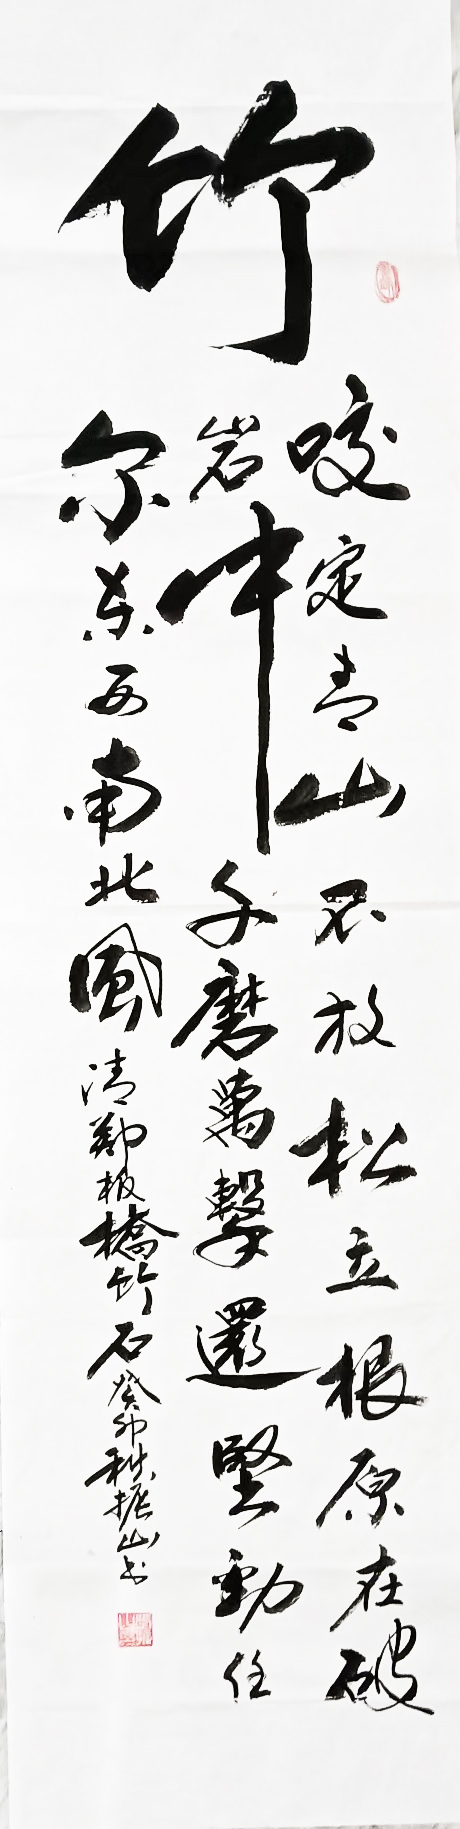 竹
咬定青山不放松立根原在破
岩中千磨萬擊還堅勁任
尔东西南北風
清鄭板橋竹石癸卯秋振山书